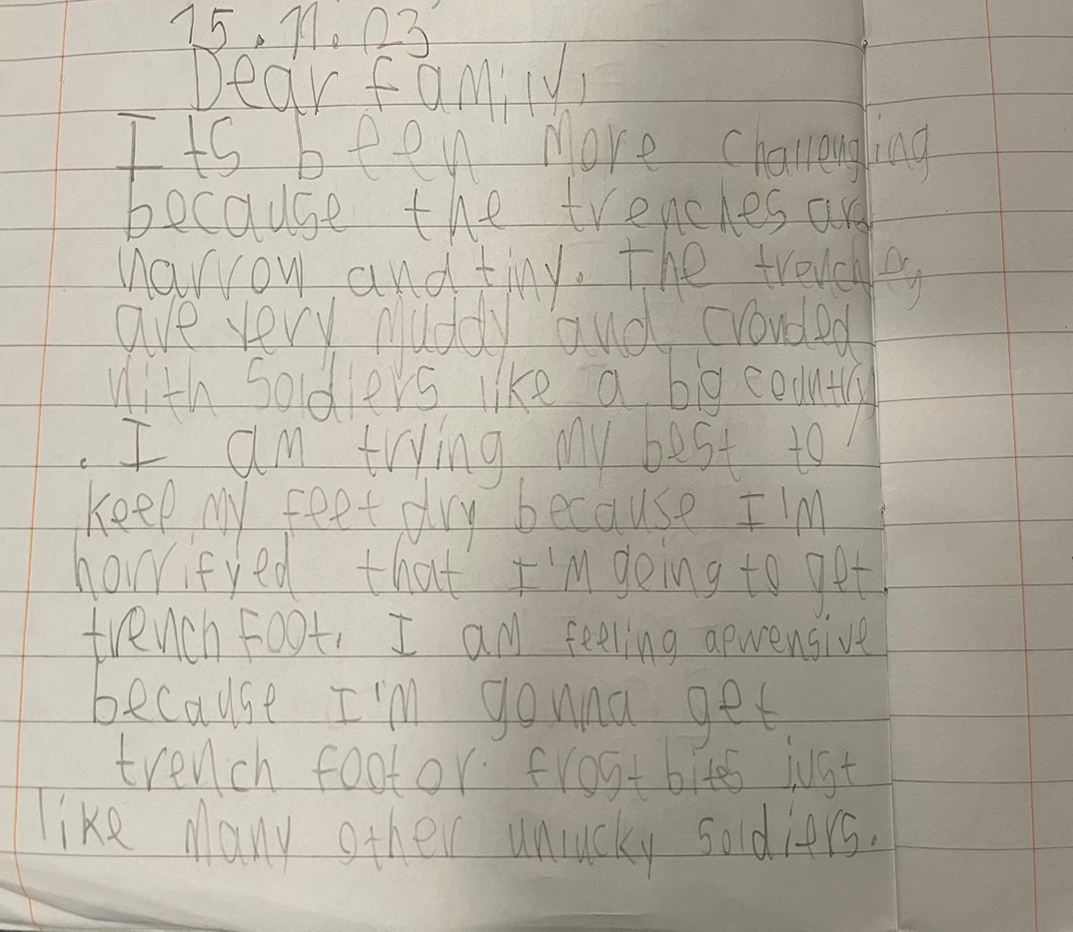 15.11.03
Dear family,
Its been more challenging
because the trenches are
narrow and tiny. The trenches
are very muddy and crowded
with soldiers like a big country
. I am trying my best to
keep my feet dry because I'm
horrifyed that I'm going to get
trench foot. I am feeling aprensive
because I'm gonna get
trench foot or frost bites just
like many other unlucky soldiers.